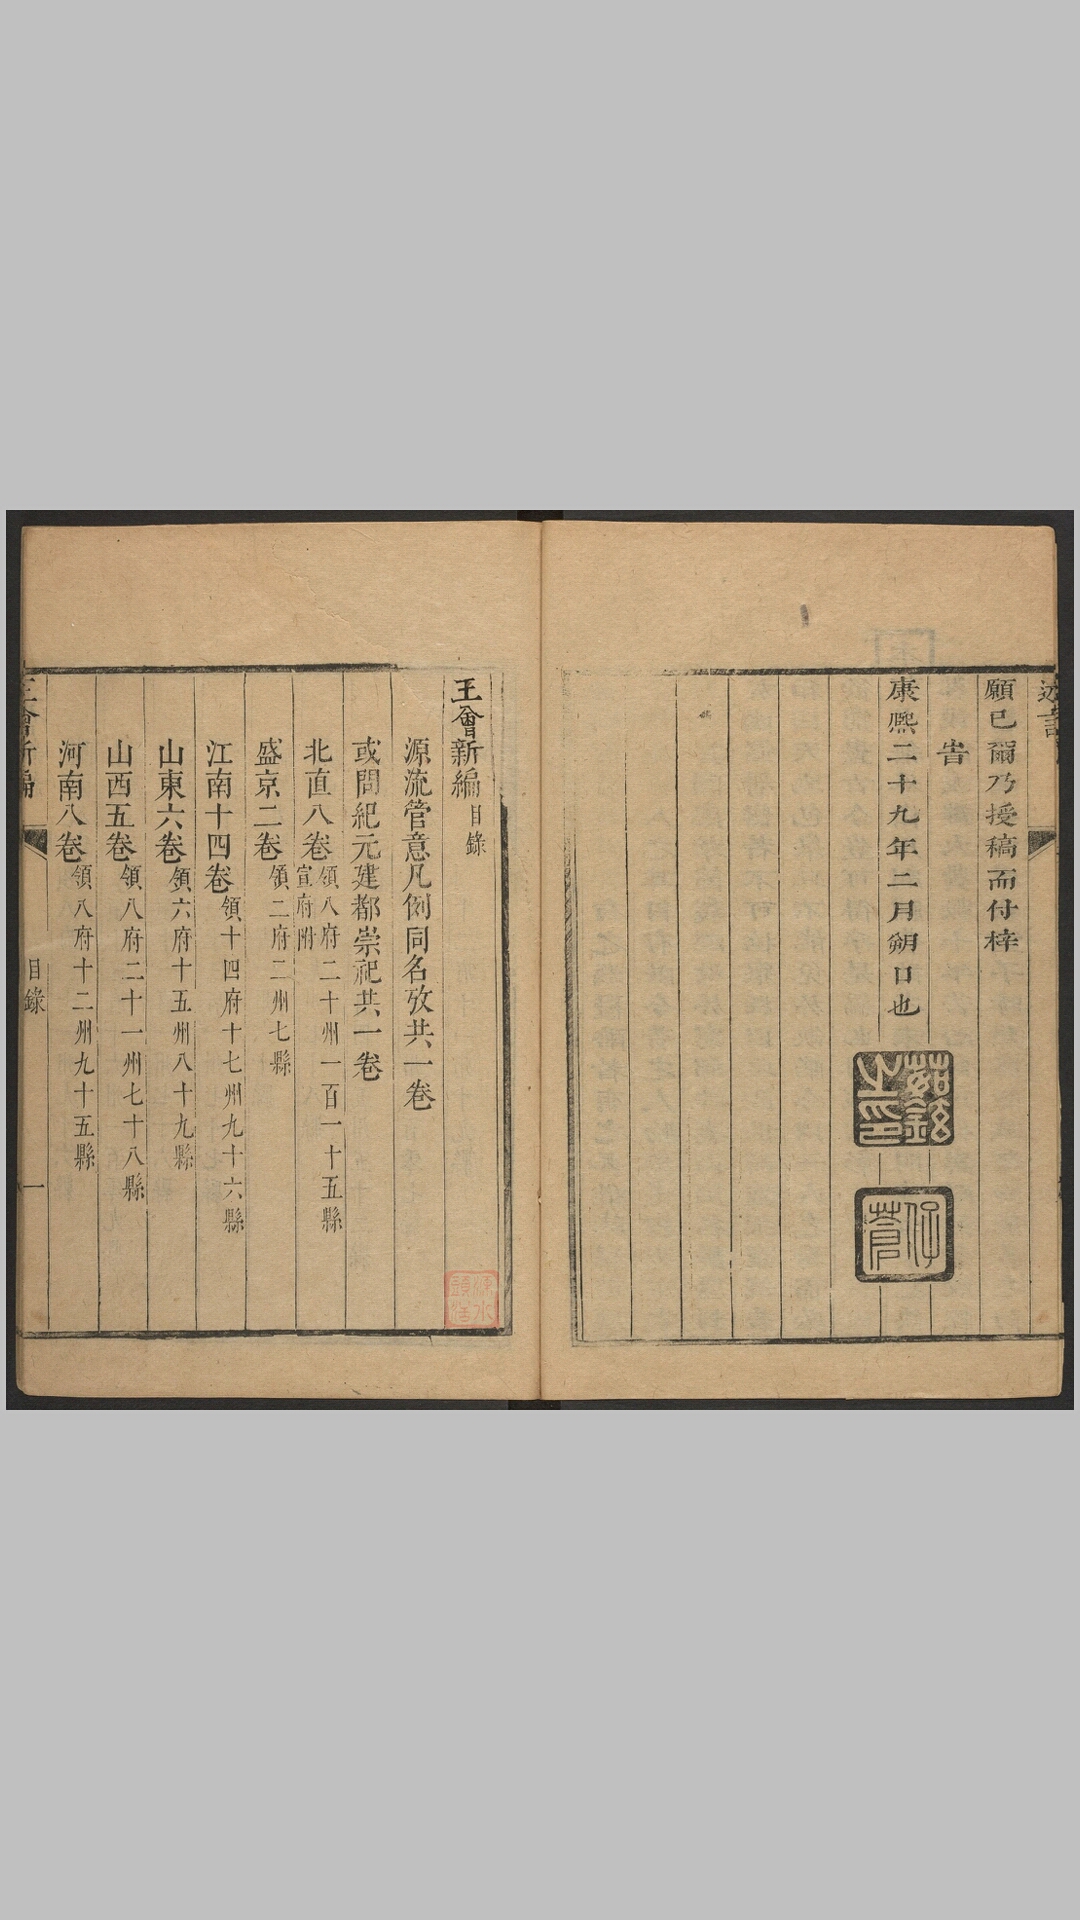 願已爾乃授稿而付梓
旹
康熙二十九年二月朔日也
王會新編目錄
源流管意凡例同名攷共一卷
或問紀元建都崇祀共一卷
北直八卷領八府二十州一百一十五縣
宣府附
盛京二卷領二府二州七縣
江南十四卷領十四府十七州九十六縣
山東六卷領六府十五州八十九縣
山西五卷領八府二十一州七十八縣
河南八卷領八府十二州九十五縣
王會新編
目錄
一